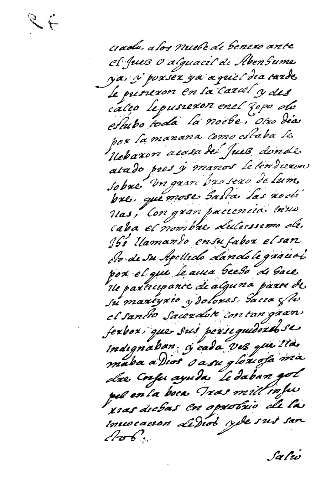 ciado, a los nuebe de henero ante
el Jues o alguacil de Abenhume
ya, y por ser ya aquel dia tarde
le pusieron en la carcel y des
calço le pusieron en el zepo do
estubo toda la noche, otro dia
por la mañana como estaba le
llebaron a casa del Jues donde
atado pies y manos le tendieron
sobre un gran brasero de lum
bre, quemose hasta las rodi
llas, con gran paciencia inuo
caba el nombre dulcissimo de
Jhs llamando en su fabor el san
cto de su Apellido dandole gracias
por el que le auia hecho de hacer
le participante de alguna parte de
su martyrio y dolores. hacia esto
el sancto sacerdote con tan gran
ferbor, que sus perseguidores se
indignaban, y cada ves que lla
maba a Dios o a su gloriosa ma
dre en su ayuda le daban gol
pes en la boca tras mill inju
rias dichas en oprobrio de la
inuocacion de dios y de sus san
ctos.
Salio